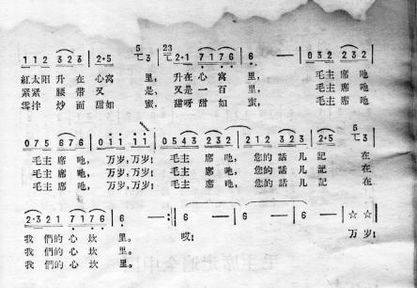 1 1 2 3 2 3 | 2·5 3 | 2·1 7 1 7 1 | 6 — | 0 3 2 2 3 2 |
紅太阳 升 在 心窩 里, 升在 心 窩 里, 毛主 席吔
紧紧 腰 带 又 是, 又是 一 百 里, 毛主 席吔
拌 炒 面 甜如 蜜, 甜呀 甜 如 蜜, 毛主 席吔
0 7 5 6 7 6 | 0 i i i i | 0 5 4 3 2 3 2 | 2 1 2 3 2 3 | 2·5 3 |
毛主 席吔, 万岁, 万岁! 毛主 席吔, 您的 話 儿 記 在
毛主 席吔, 万岁, 万岁! 毛主 席吔, 您的 話 儿 記 在
毛主 席吔, 万岁, 万岁! 毛主 席吔, 您的 話 儿 記 在
2·3 2 1 | 7 1 7 6 | 6 — :| 6 — | 6 — | 6 — | ☆ ☆ ||
我 們的 心 坎 里。 哎! 万岁!
我 們的 心 坎 里。
我 們的 心 坎 里。